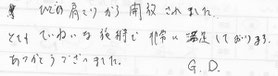 ひどい肩こりから開放されました。
とても ていねいな 施術で 非常に 満足しております。
ありがとうございました。
G.D.